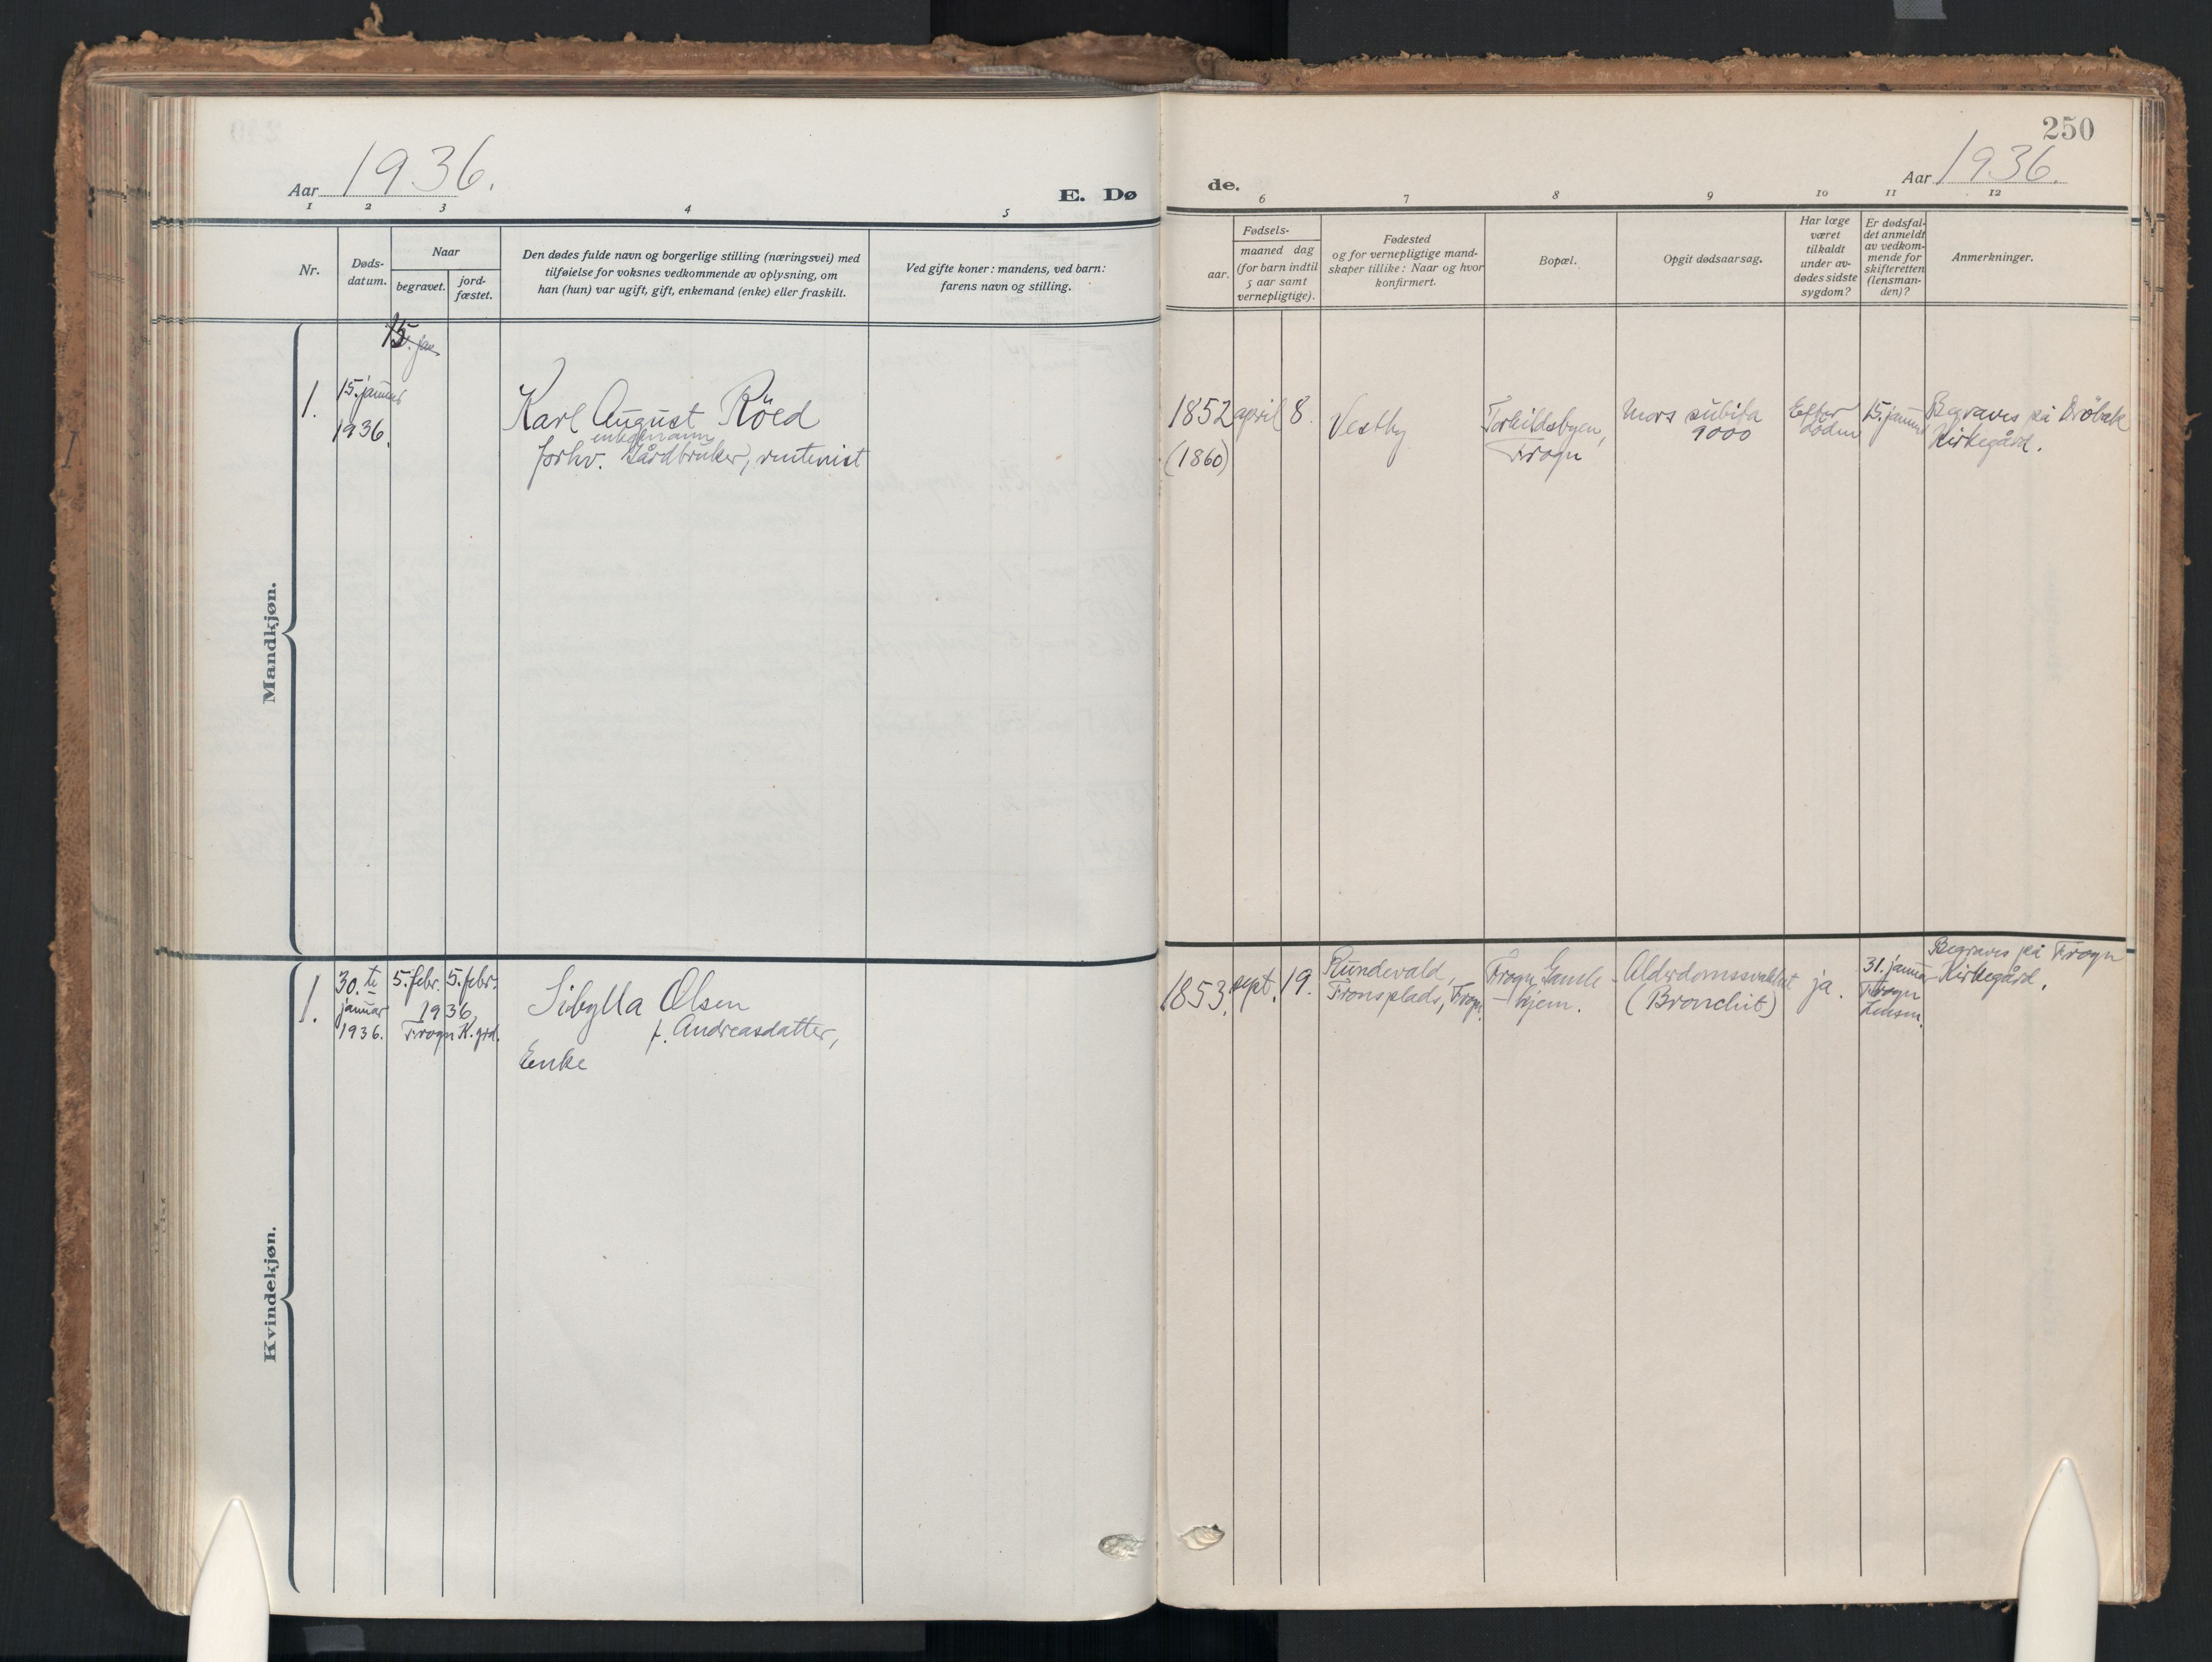 250
Aar 1936.
E. Dø
de.
Aar 1936.
1 2 3 4 5
6 7 8 9 10 11 12
Nr.
Døds-
datum.
Naar
begravet.
jord-
fæstet.
Den dødes fulde navn og borgerlige stilling (næringsvei) med
tilføielse for voksnes vedkommende av oplysning, om
han (hun) var ugift, gift, enkemand (enke) eller fraskilt.
Ved gifte koner: mandens, ved barn:
farens navn og stilling.
Fødsels-
aar.
maaned dag
(for barn indtil
5 aar samt
vernepligtige).
Fødested
og for vernepligtige mand-
skaper tillike: Naar og hvor
konfirmert.
Bopæl.
Opgit dødsaarsag.
Har læge
været
tilkaldt
under av-
dødes sidste
sygdom?
Er dødsfal-
det anmeldt
av vedkom-
mende for
skifteretten
(lensman-
den)?
Anmerkninger.
Mandkjøn.
15. jan
1.
15. januar
1936.
Karl August Röed
enkemann
forhv. Gårdbruker, rentenist
1852
(1860)
april 8.
Vestby
Torkildsbyen,
Frogn
Mors subita
9000
Efter
döden
15. januar
Begraves på Dröbak
Kirkegård.
Kvindekjøn.
1.
30. te
januar
1936.
5. febr. 5. febr.
1936,
Frogn K.grd.
Sibylla Olsen
f. Andreasdatter,
Enke
1853. sept. 19.
Rundevald,
Fronsplads, Frogn.
Frogn Gamle
-hjem.
Alderdomssvakhet
(Bronchit)
ja.
31. januar
Frogn
Lensm.
Begraves på Frogn
Kirkegård.